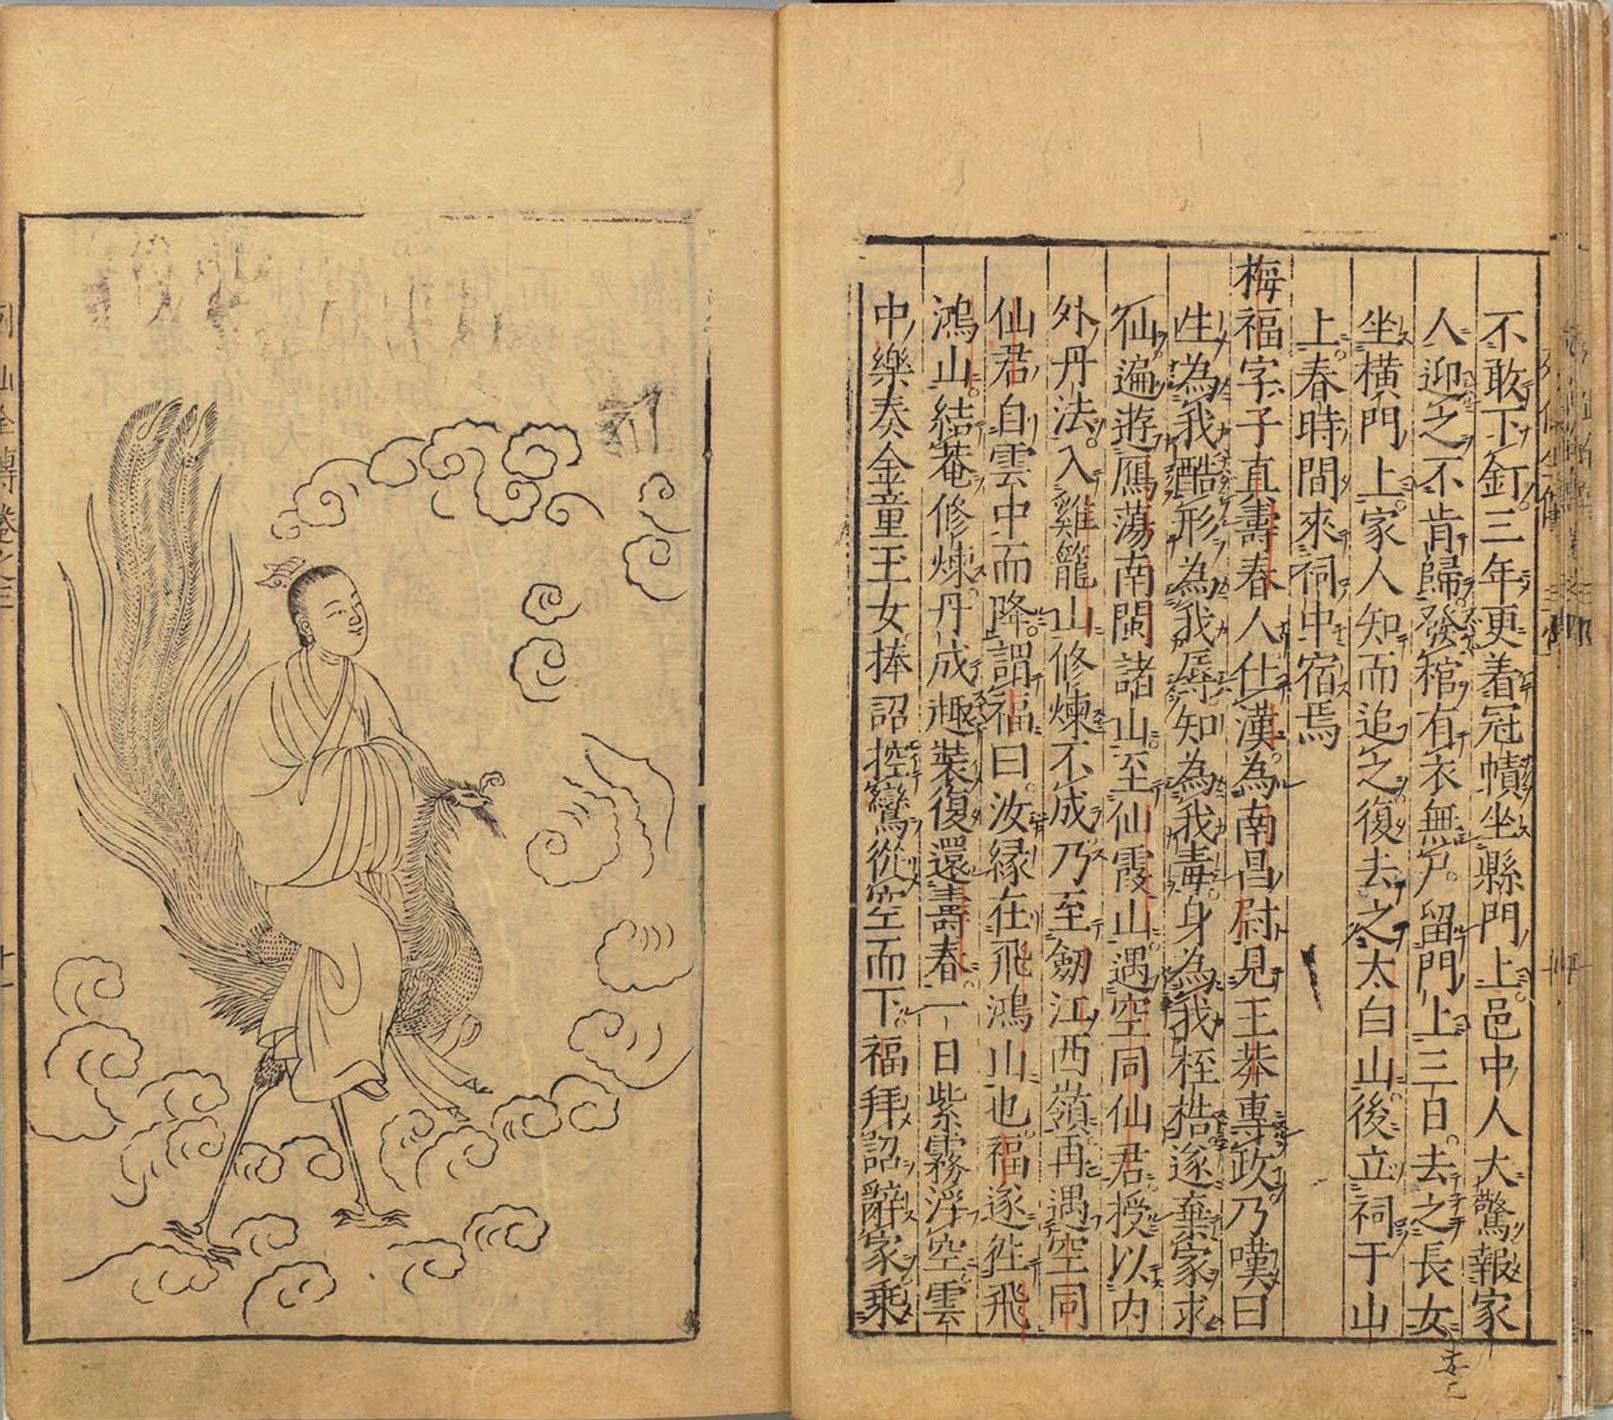 不敢下釘三年更着冠幘坐縣門上邑中人大驚報家
人迎之不肯歸發棺有衣無尸留門上三日去之長女
坐橫門上家人知而追之復去之太白山後立祠于山
上春時間來祠中宿焉
梅福字子真壽春人仕漢為南昌尉見王莽專政乃嘆曰
生為我酷形為我辱知為我毒身為我桎梏遂棄家求
仙遍遊鴈蕩南閩諸山至仙霞山遇空同仙君授以內
外丹法入雞籠山修煉不成乃至劒江西嶺再遇空同
仙君自雲中而降謂福曰汝緣在飛鴻山也福遂徃飛
鴻山結菴修煉丹成趣裝復還壽春一日紫霧浮空雲
中樂奏金童玉女捧詔控鸞從空而下福拜詔辭家乘
列仙全傳卷之三
十一